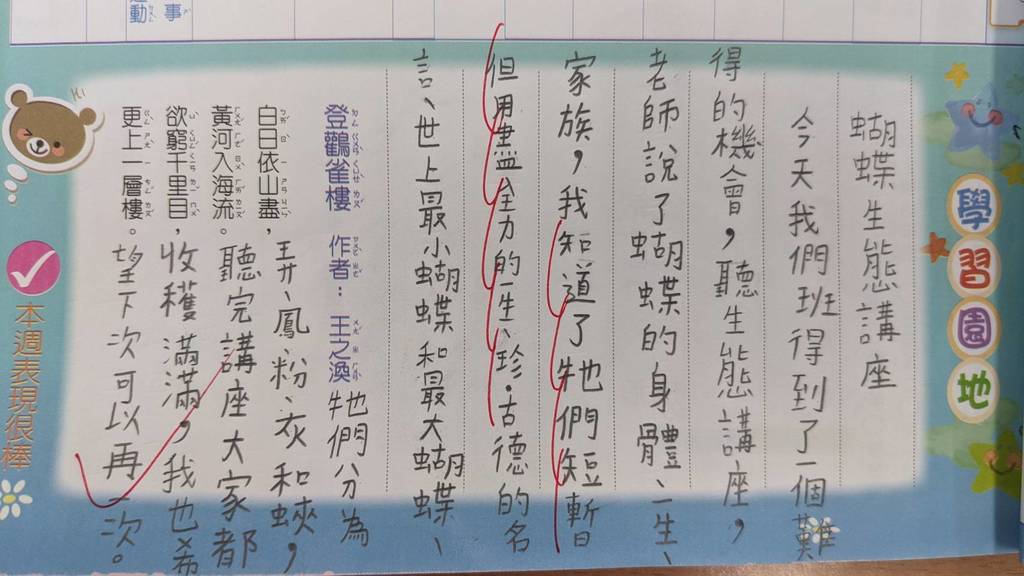 動
事
學習園地
蝴蝶生態講座
今天我們班得到了一個難
得的機會，聽生態講座，
老師說了蝴蝶的身體、一生、
家族，我知道了牠們短暫
但用盡全力的一生、珍·古德的名
言、世上最小蝴蝶和最大蝴蝶、
登鸛雀樓 作者：王之渙
牠們分為
白日依山盡，
弄、鳳、粉、灰和蛺，
黃河入海流。
聽完講座大家都
欲窮千里目，
收穫滿滿，我也希
更上一層樓。
望下次可以再一次。
Hi
本週表現很棒